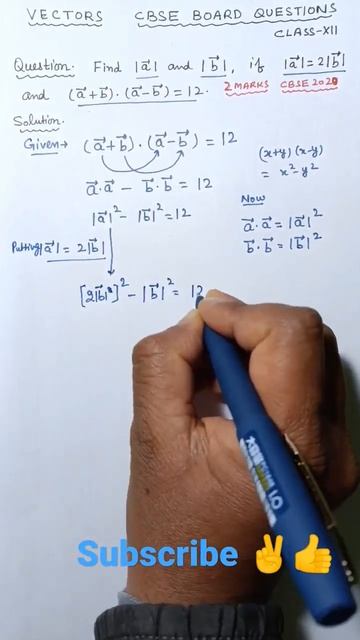 VECTORS CBSE BOARD QUESTIONS
CLASS-XII
Question. Find |a⃗| and |b⃗|, if |a⃗| = 2|b⃗|
and (a⃗+b⃗)·(a⃗-b⃗) = 12. 2 MARKS CBSE 2020
Solution.
Given→ (a⃗+b⃗)·(a⃗-b⃗) = 12
(x+y)(x-y)
= x²-y²
a⃗·a⃗ - b⃗·b⃗ = 12
|a⃗|² - |b⃗|² = 12
Now
a⃗·a⃗ = |a⃗|²
b⃗·b⃗ = |b⃗|²
Putting |a⃗| = 2|b⃗|
[2|b⃗|]² - |b⃗|² = 12
Subscribe ✌👍